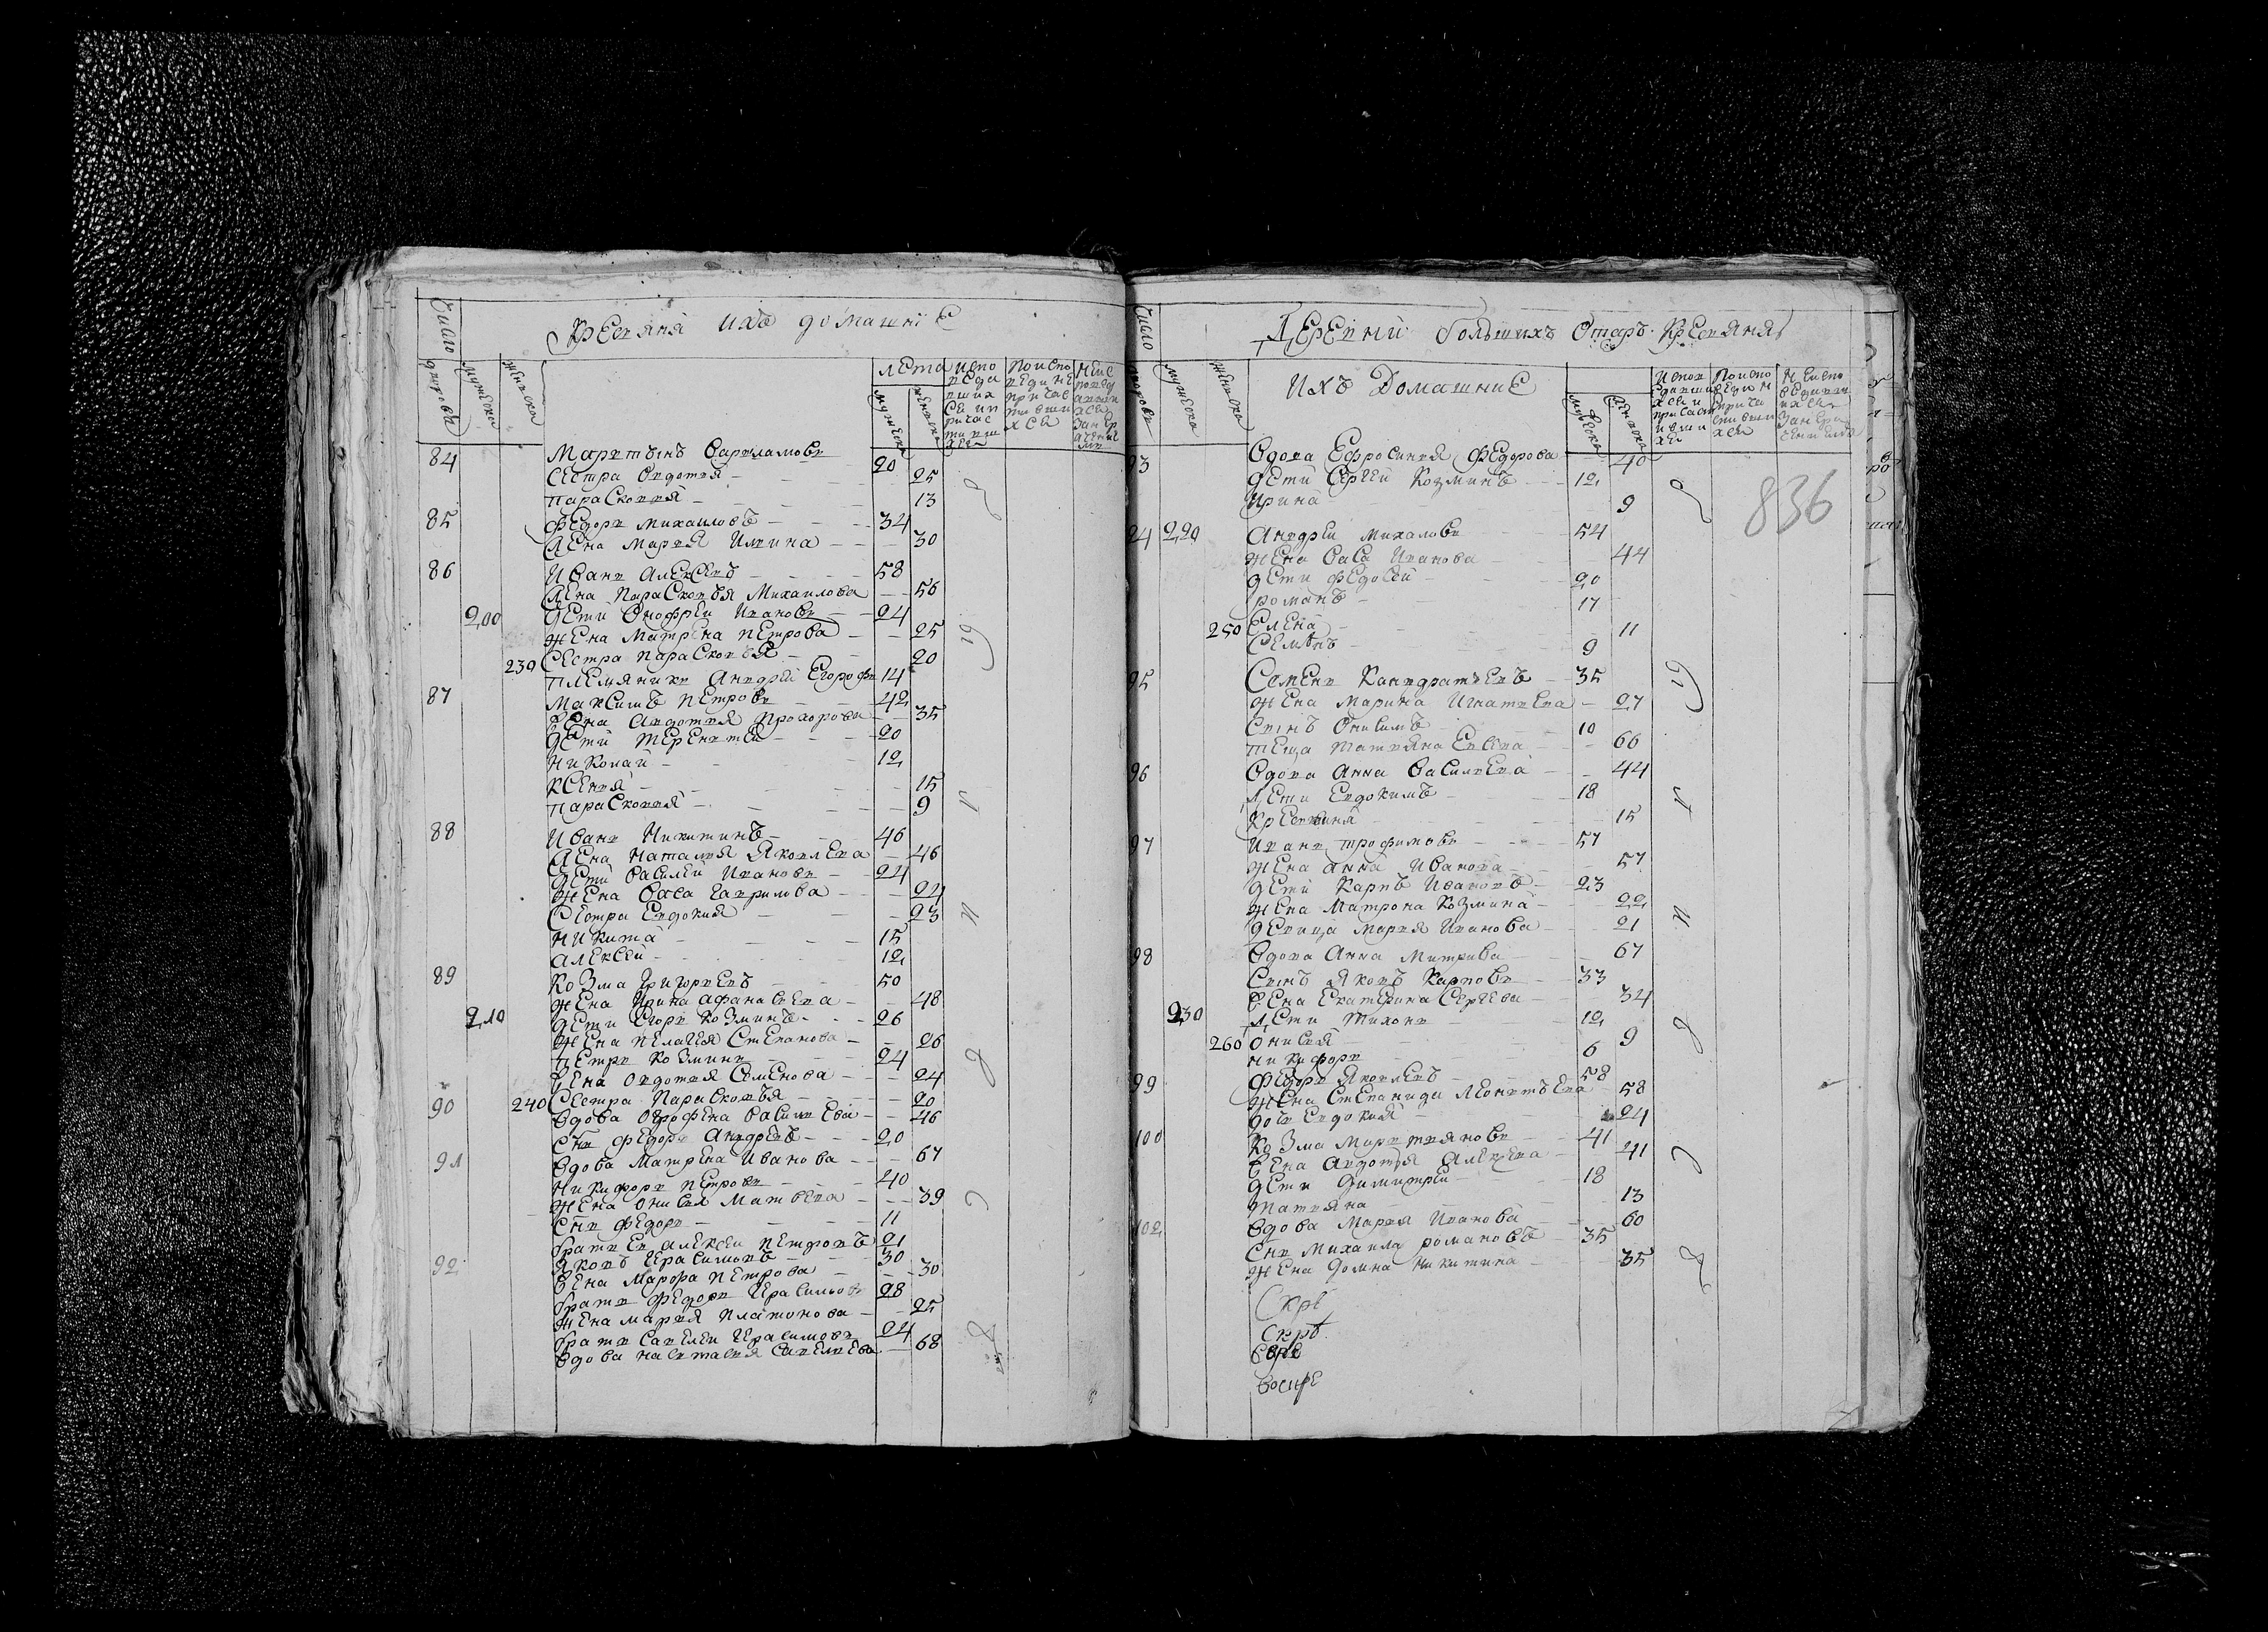 Кресьяня ихъ домашніе
Число
дворовъ
мужеска
женска
лета
мужеска
женска
испо
веда
вших
ся и п
ричас
тивш
хся
поиспо
веди не
причас
тивши
хся
84 Мартынъ Варламовъ 20
сестра Овдотья 25
парасковья 13
85 федоръ михаиловъ 34
жена марья Ильина 30
86 Иванъ Алексевъ 58
жена парасковья Михаилова 56
200 дети Онофреи Ивановъ 24
жена матрена петрова 25
239 сестра парасковья 20
племяникъ Андреи Егорофъ 14
87 максимъ петровъ 42
жена Авдотья Прохорова 35
дети терентеи 20
николаи 12
ксенья 15
парасковья 9
88 Иванъ Никитинъ 46
жена наталья Яковлева 46
дети василеи Ивановъ 24
жена васа гаврилова 24
сестра Евдокия 23
никита 15
алексеи 12
89 козма григорьевъ 50
жена Ирина афанасьева 48
210 дети Егоръ козминъ 26
жена пелагея Степанова 26
петръ козминъ 24
жена овдотья Семенова 24
240 сестра парасковья 20
90 вдова Огрофена васильева 46
снъ федоръ Андреевъ 20
91 вдова матрена иванова 67
никифоръ петровъ 40
жена онисья матвеева 39
снъ федоръ 11
братъ Ев алексеи петровъ 21
92 яковъ герасимовъ 30
жена марфа петрова 30
братъ федоръ герасимовъ 28
жена марья платонова 25
братъ савелеи герасимовъ 24
вдова настасья савельева 68
Деревни большихъ Отаръ кресьяня
Число
дворовъ
мужеска
женска
Ихъ Домашние
мужеска
женска
836
93 Вдова Ефросинья федорова 40
дети Сергеи козминъ 12
Ирина 9
94 220 Андреи михаловъ 54
жена васа Иванова 44
дети федосеи 20
романъ 17
250 Елена 11
семенъ 9
95 Семенъ кандратьевъ 35
жена марина Игнатьева 27
сынъ Онисимъ 10
теща татьяна Евсева 66
96 Вдова анна васильева 44
Дети Евдокимъ 18
97 Иванъ трофимовъ 57
жена анна Иванова 57
дети карпъ Ивановъ 23
жена матрона козмина 22
девица марья Иванова 21
98 Вдова Анна митрева 67
сынъ яковъ карповъ 33
жена Екатерина сергева 34
230 Дети тихонъ 12
260 онисья 9
никифоръ 6
99 федоръ яковлевъ 58
жена степанида леонтьева 58
дочь евдокия 24
100 козма мартьяновъ 41
жена авдотья алексева 41
дети димитреи 18
татьяна 13
102 вдова марья Иванова 60
снъ михаила романовъ 35
жена домна никитина 35